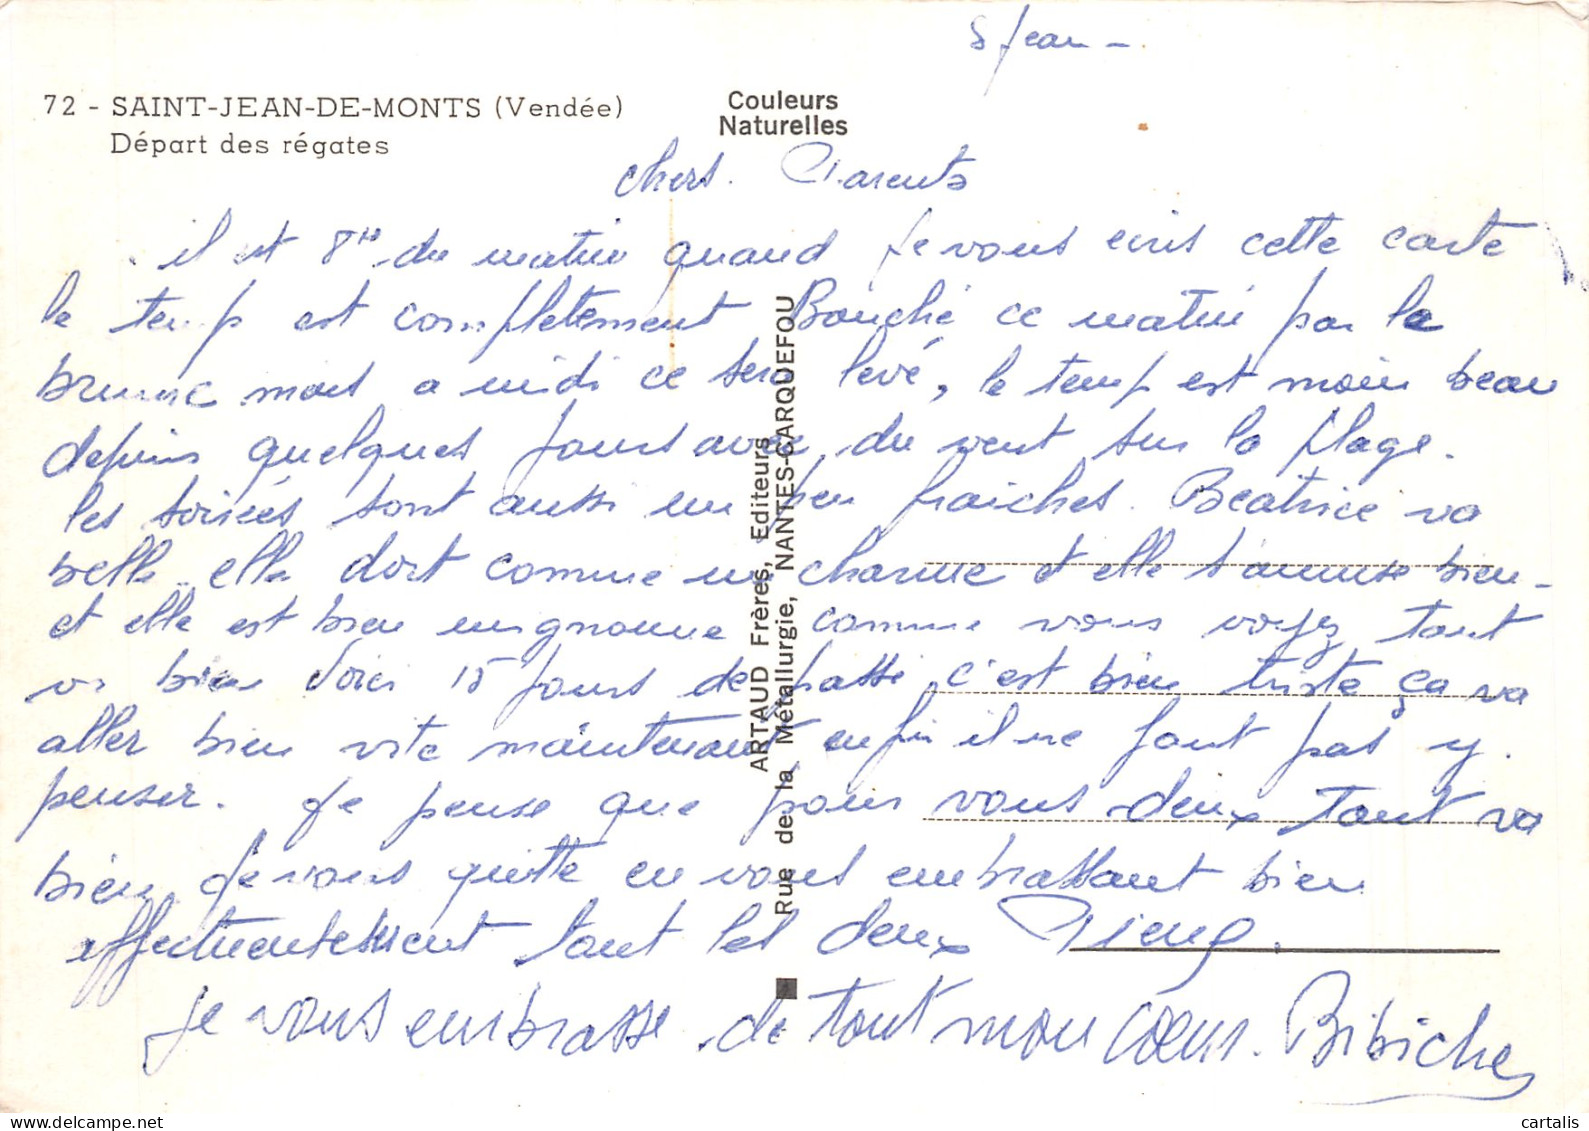 S Jean -
72 - SAINT-JEAN-DE-MONTS (Vendée)
Départ des régates
Couleurs
Naturelles
chers. Parents
il est 8H du matin quand je vous ecris cette carte
le temp est completement Bouché ce matin par la
brume mais a midi ce sera levé, le temp est moin beau
depuis quelques jours avec du vent sur la plage.
les soirées sont aussi un peu fraiches. Beatrice va
belle elle dort comme un charme et elle s'amuse bien -
et elle est bien mignonne comme vous voyez tout
va bien Voici 15 jours de passé c'est bien triste ça va
aller bien vite maintenant enfin il ne faut pas y.
penser. Je pense que pour vous deux tout va
bien. Je vous quitte en vous embrassant bien
affectueusement tout les deux
Je vous embrasse de tout mon coeur. Bibiche
ARTAUD Frères, Editeurs
Rue de la Métallurgie, NANTES-CARQUEFOU
cartalis